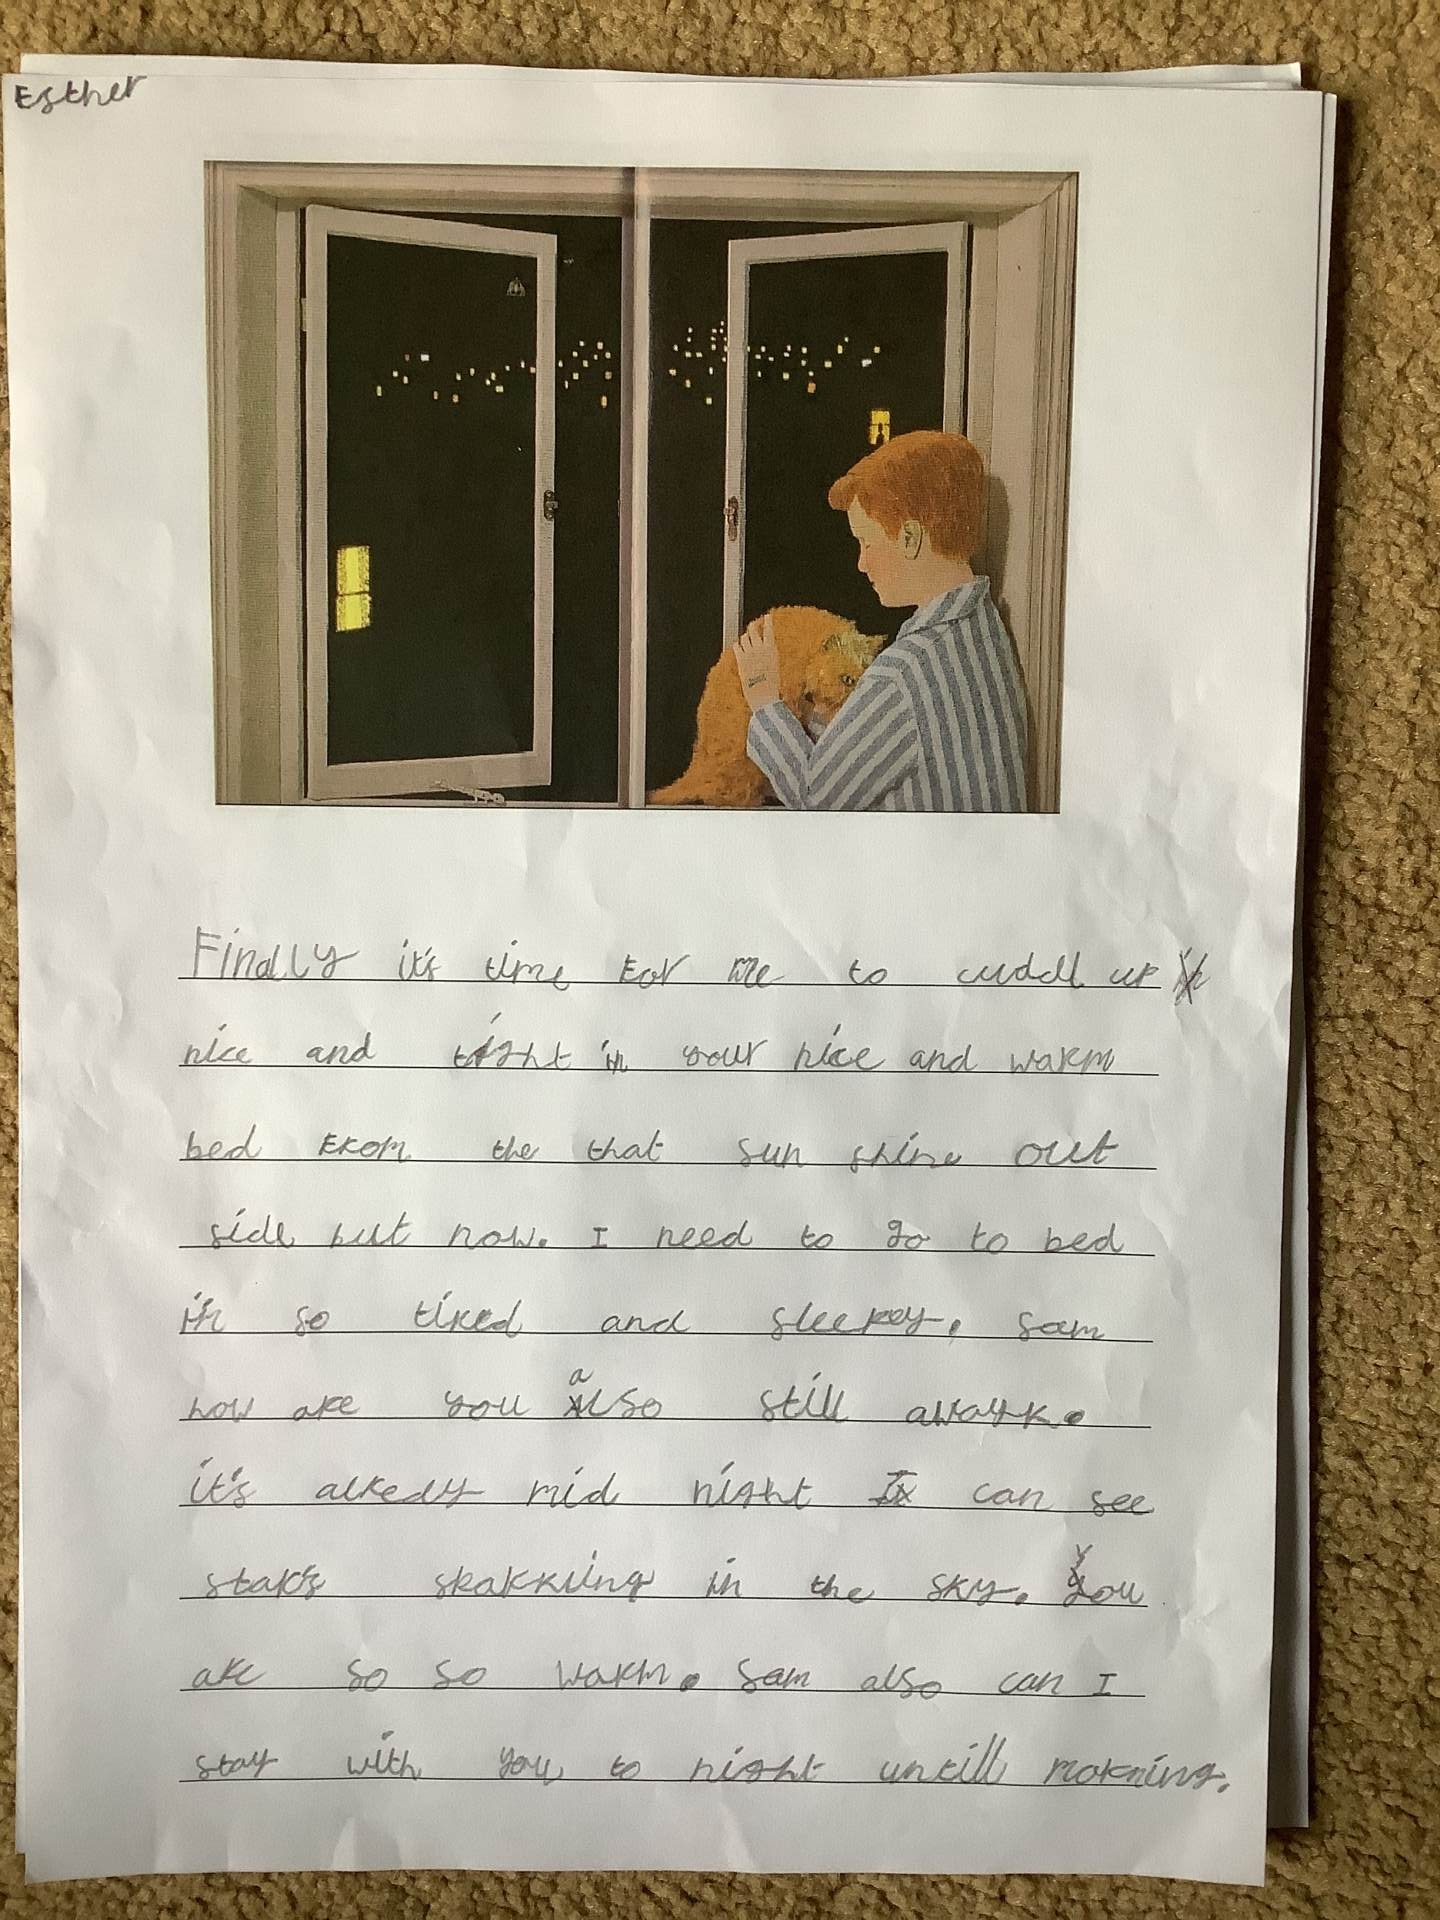 Esther
Finally it's time for me to cuddl up
nice and tight in your nice and warm
bed from the that sun shine out
side but now. I need to go to bed
i'm so tired and sleepey. sam
how are you also still awayk.
it's alredy mid night I can see
star's sparkuling in the sky. You
are so so warm. Sam also can I
stay with you to night untill morning.